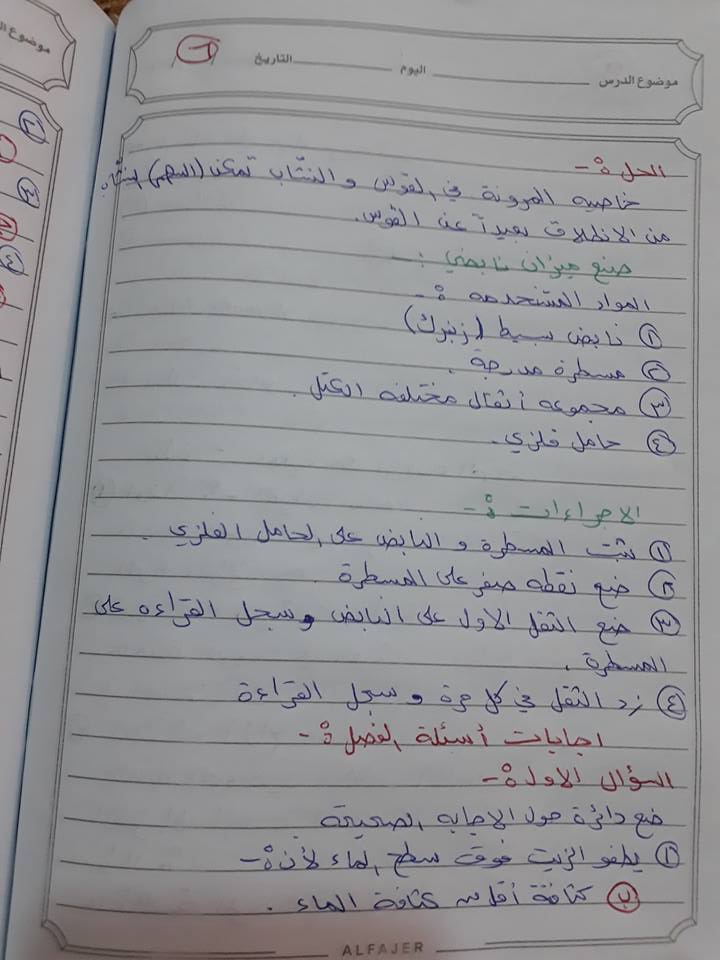 موضوع الدرس اليوم التاريخ
الحل :-
خاصيه المرونة في القوس و النشّاب تمكن (السهم)
من الانطلاق بعيداً عن القوس.
صنع ميزان نابضي :-
المواد المستخدمه :-
١ نابض بسيط (زنبرك)
٢ مسطرة مدرجة .
٣ مجموعه أثقال مختلفه الكتل .
٤ حامل فلزي .
الاجراءات :-
١ ثبت المسطرة و النابض على الحامل الفلزي .
٢ ضع نقطه صفر على المسطرة .
٣ ضع الثقل الاول على النابض و سجل القراءه على
المسطرة .
٤ زد الثقل في كل مرة و سجل القراءة
اجابات أسئلة الفصل :-
السؤال الاول :-
ضع دائرة حول الاجابه الصحيحة
١ يطفو الزيت فوق سطح الماء لأن :-
ب كثافة أقل من كثافة الماء .
ALFAJER
موضوع ال